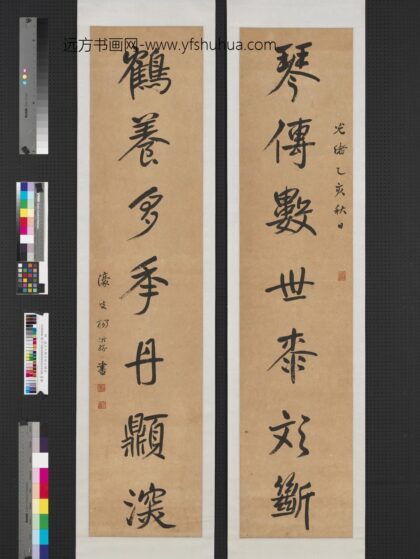 远方书画网-www.yfshuhua.com
琴傳數世桼文斷
光緒乙亥秋日
鶴養多秊丹𩕢深
濠叟楊沂孫書